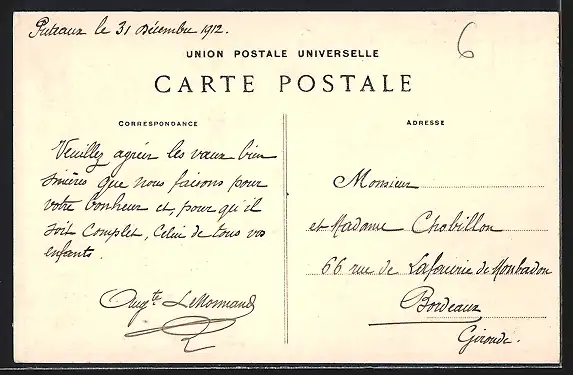 Puteaux le 31 Décembre 1912.
6
UNION POSTALE UNIVERSELLE
CARTE POSTALE
CORRESPONDANCE
Veuillez agréer les vœux bien
sincères que nous faisons pour
votre bonheur et, pour qu'il
soit complet, celui de tous vos
enfants.
Augte LeNormand
ADRESSE
Monsieur
et Madame Chabillon
66 rue de Lafaurie de Monbadon
Bordeaux
Gironde.